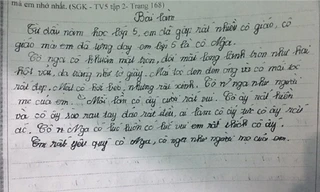 mà em nhớ nhất. (SGK - TV5 tập 2- Trang 168)
Bài làm
Từ đầu năm học lớp 5, em đã gặp rất nhiều cô giáo, cô
giáo mà em đã từng dạy em lớp 5 là cô Nga.
Cô Nga có khuôn mặt tròn, đôi mắt long lanh tròn như hai
hột vải, da trắng như tờ giấy. Mái tóc đen đen óng và có mái tóc
rất đẹp. Mái cô hơi béo, nhưng rấu xinh. Cô Nga như người
mẹ của em. Mỗi lần cô ấy cười rất vui. Cô ấy rất hiền
và cô ấy sao nay dáo rất dễ, ai làm cô ấy tức cô ấy rất
ác. Cô Nga có lúc hiền có lúc vui em rất thích cô ấy.
Em rất yêu quý cô Nga, cô Nga như người mẹ của em.